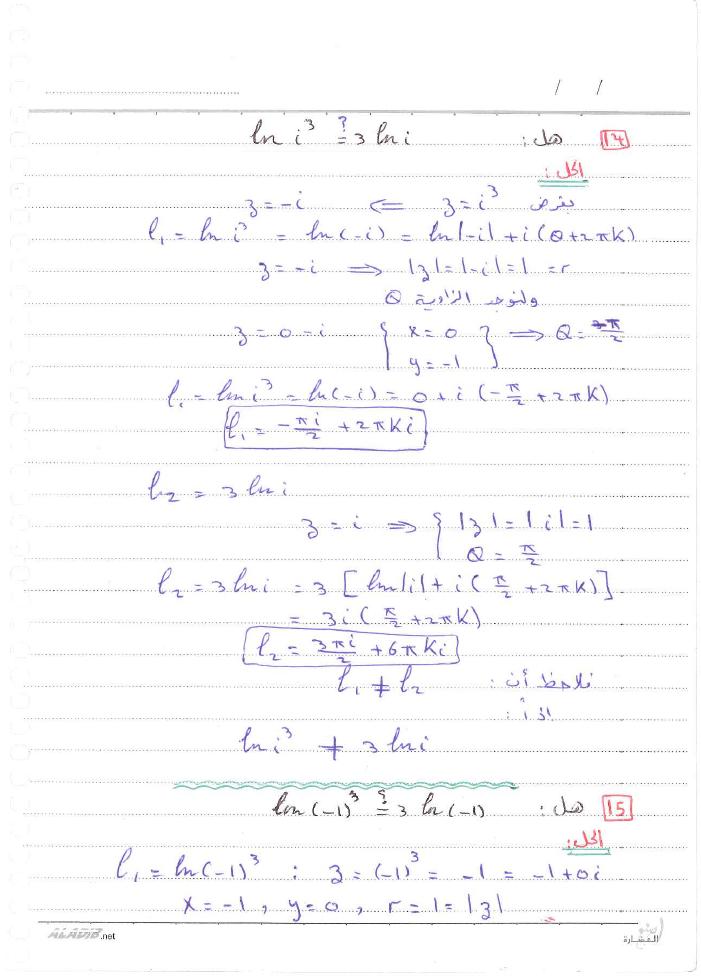 / /
14 هل: ln i³ ≟ 3 ln i
الحل:
بفرض z = i³ ⇐ z = -i
l₁ = ln i³ = ln(-i) = ln|-i| + i(θ+2πK)
z = -i ⟹ |z| = |-i| = 1 = r
ولنوجد الزاوية θ
z = 0 - i { x = 0 } ⟹ θ = -π/2
{ y = -1 }
l₁ = ln i³ = ln(-i) = 0 + i (-π/2 + 2πK)
l₁ = -πi/2 + 2πKi
l₂ = 3 ln i
z = i ⟹ { |z| = |i| = 1
θ = π/2
l₂ = 3 ln i = 3 [ln|i| + i(π/2 + 2πK)]
= 3i(π/2 + 2πK)
l₂ = 3πi/2 + 6πKi
نلاحظ أن: l₁ ≠ l₂
ln i³ ≠ 3 ln i
15 هل: ln(-1)³ ≟ 3 ln(-1)
الحل:
l₁ = ln(-1)³ : z = (-1)³ = -1 = -1+0i
x = -1 , y = 0 , r = 1 = |z|
ALADIB.net